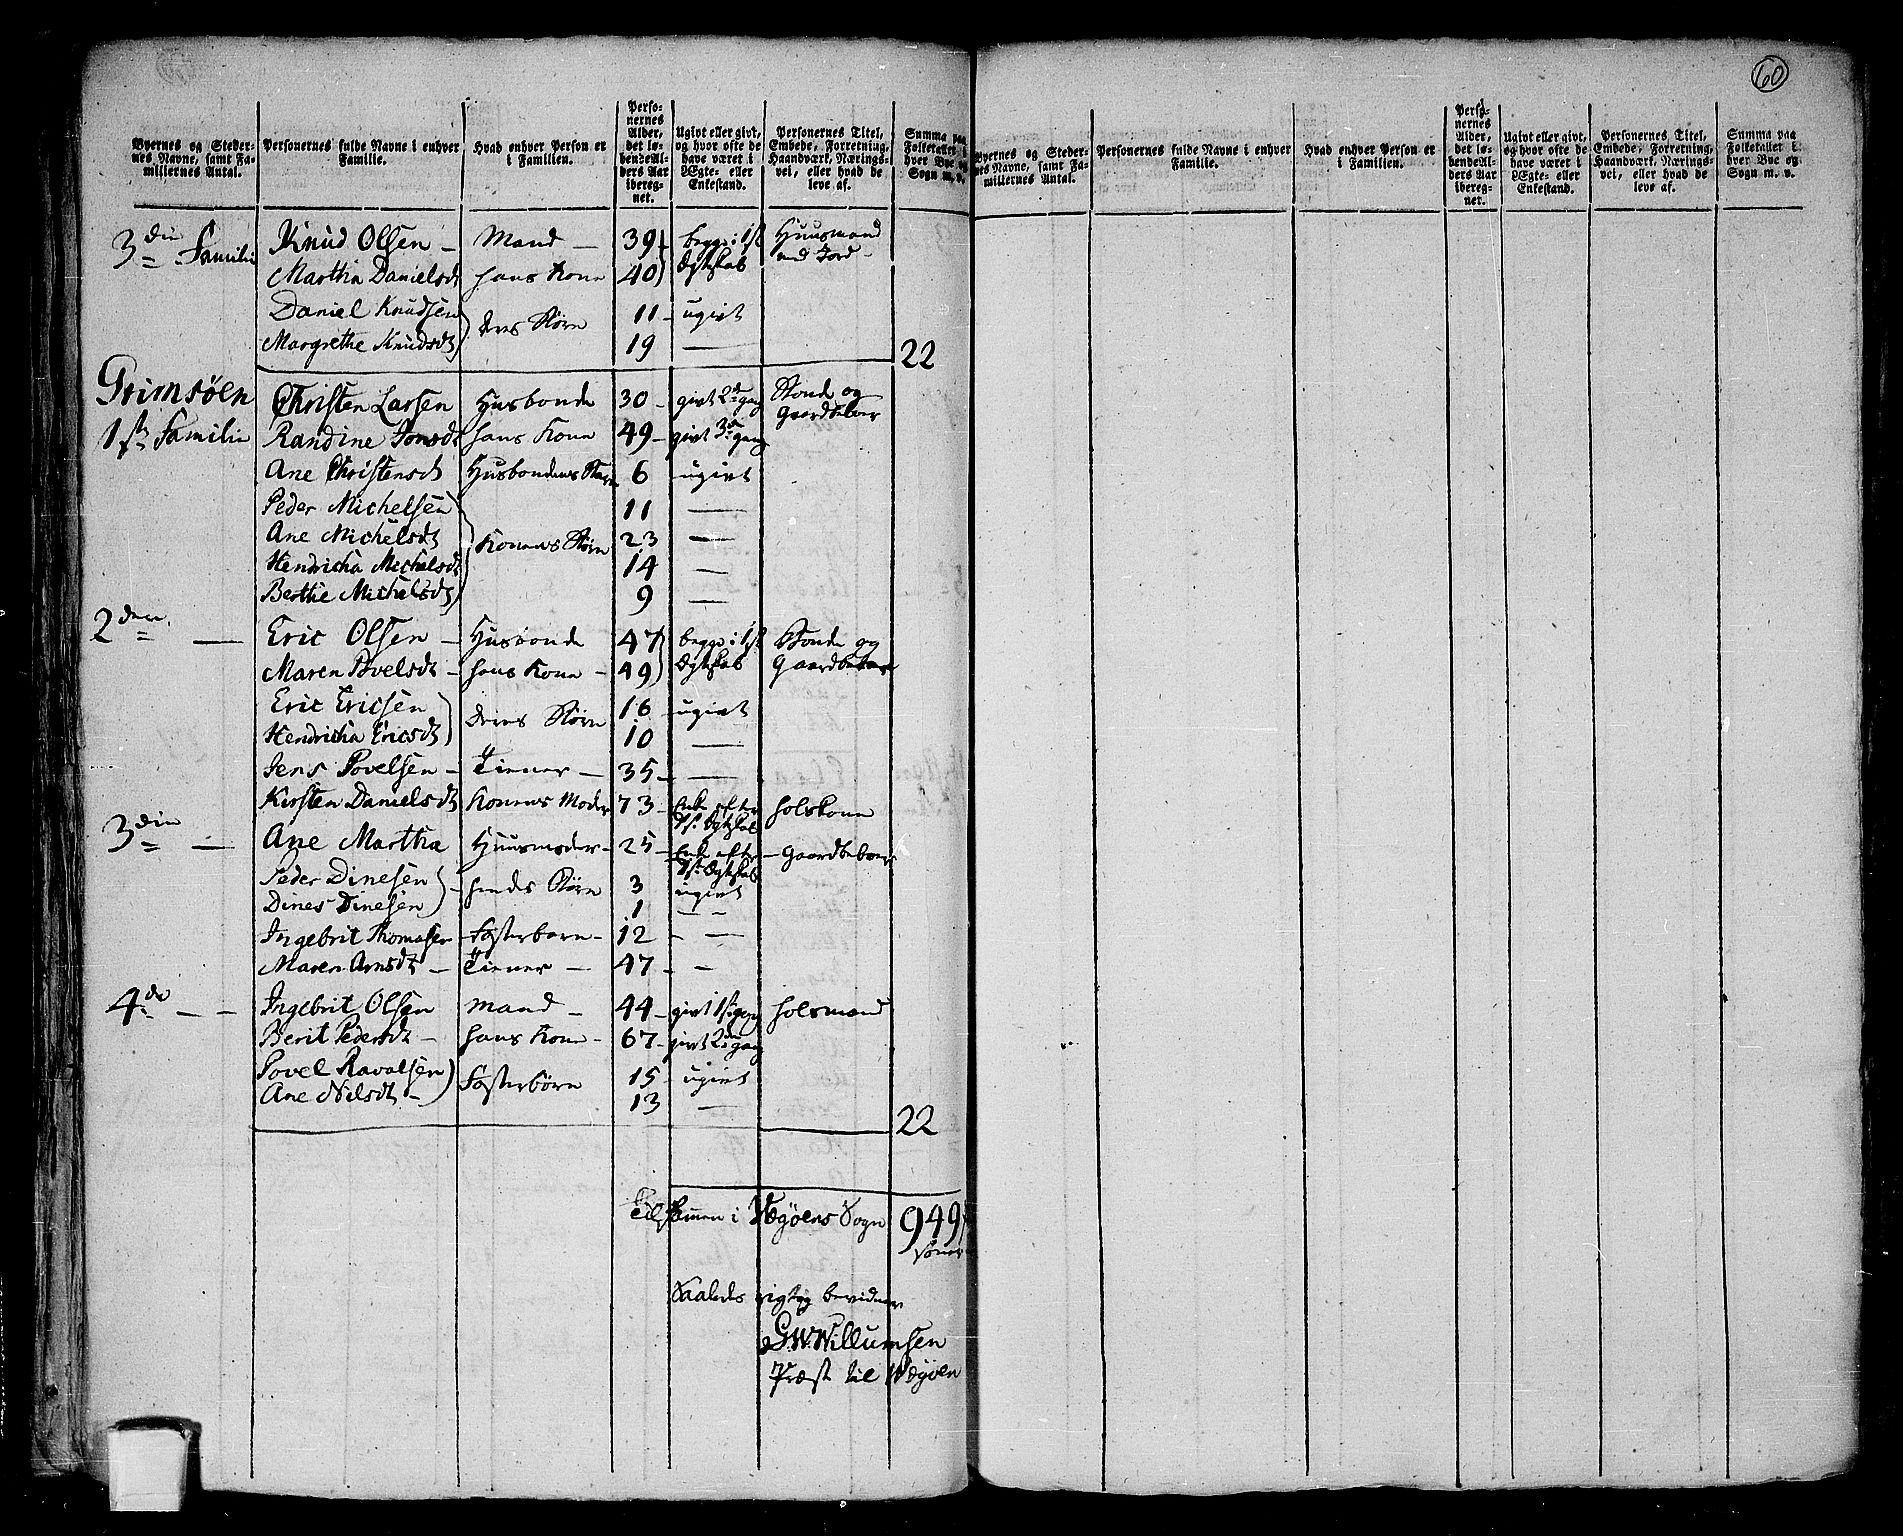 60
Byernes og Steder-
nes Navne, samt Fa-
miliernes Antal.
Personernes fulde Navne i enhver
Familie.
Hvad enhver Person er
i Familien.
Perso-
nernes
Alder,
det lø-
bende Al-
ders Aar
iberegnet.
Ugivt eller givt,
og hvor ofte de
have været i
Ægte- eller
Enkestand.
Personernes Titel,
Embede, Forretning,
Haandværk, Nærings-
vei, eller hvad de
leve af.
Summa paa
Folketallet i
hver Bye og
Sogn m. v.
3die Familie Knud Olsen – Mand – 39 begge i 1ste Huusmand
Martha Danielsdt hans Kone 40 Ægteskab med Jord
Daniel Knudsen deres Børn 11 – ugivt
Margrethe Knudsdt 19 —
22
Grimsøen Christen Larsen Husbonde 30 – givt 2de gang Bonde og
Gaardbeboer
1ste Familie Randine Jonsdt hans Kone 49 – givt 3de gang
Ane Christensdt Husbondens Barn 6 ugivt
Peder Michelsen 11 —
Ane Michelsdt Konens Børn 23 —
Hendricha Michelsdt 14 —
Berthe Michelsdt 9 —
2den — Eric Olsen – Husbonde 47 begge i 1ste Bonde og
Maren Povelsdt – hans Kone – 49 Ægteskab Gaardbeboer
Eric Ericsen deres Børn 16 – ugivt
Hendricha Ericsdt 10 —
Jens Povelsen – Tiener – 35 – —
Kirsten Danielsdt Konens Moder 73 – Enke efter holskone
1ste Ægteskab
3die — Ane Martha Huusmoder – 25 – Enke efter – Gaardbeboer
1ste Ægteskab
Peder Dinesen hendes Børn 3 ugivt
Dines Dinesen 1 – –
Ingebrit Thomasen – Fosterbarn – 12 – —
Maren Arnsdt – Tiener – 47 – –
4de – – Ingebrit Olsen Mand – 44 – givt 1ste gang holsmand
Berit Pedersdt – hans Kone – 67 – givt 2den gang
Povel Ravalsen Fosterbørn 15 – ugivt
Ane Nilsdt – 13 —
22
Tilsammen i Vegøens Sogn 949
Saaledes rigtig bevidner
G. W. Willumsen
Præst til Wegøen
Byernes og Steder-
nes Navne, samt Fa-
miliernes Antal.
Personernes fulde Navne i enhver
Familie.
Hvad enhver Person er
i Familien.
Perso-
nernes
Alder,
det lø-
bende Al-
ders Aar
ibereg-
net.
Ugivt eller givt,
og hvor ofte de
have været i
Ægte- eller
Enkestand.
Personernes Titel,
Embede, Forretning,
Haandværk, Nærings-
vei, eller hvad de
leve af.
Summa paa
Folketallet i
hver Bye og
Sogn m. v.